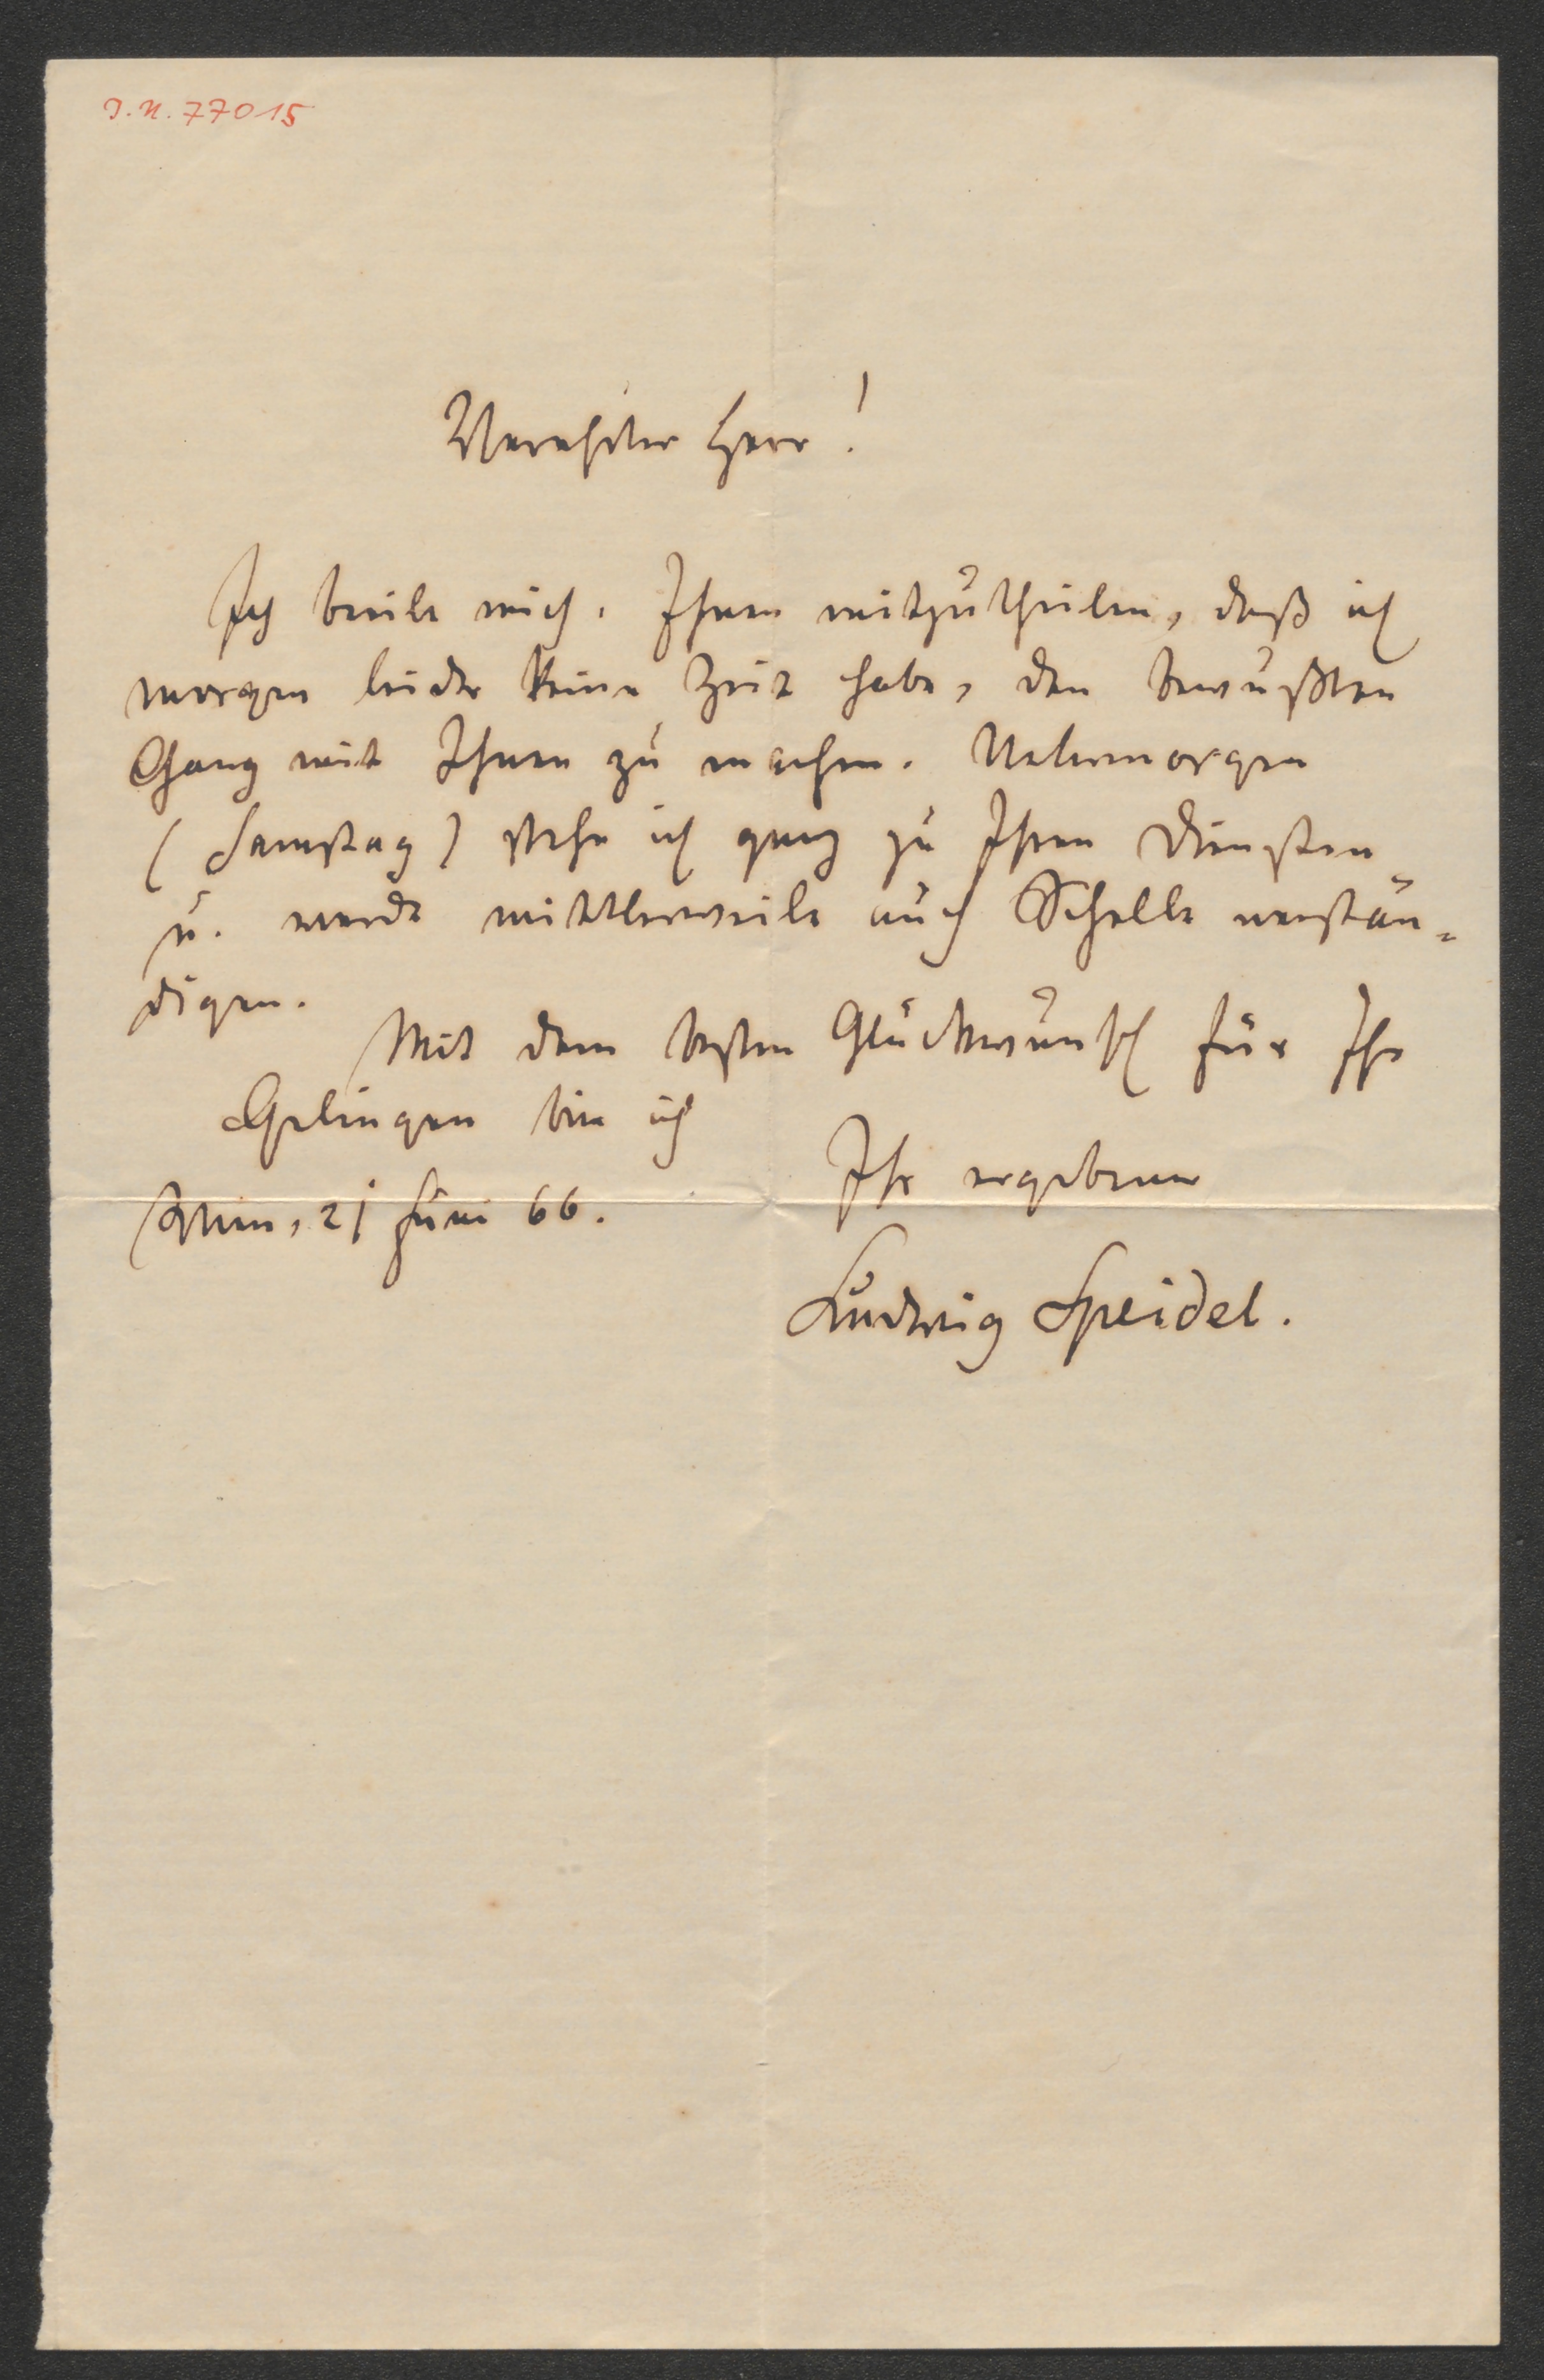 I. N. 77015
Verehrter Herr!
Ich beeile mich, Ihnen mitzutheilen, daß ich
morgen leider keine Zeit habe, den bewußten
Gang mit Ihnen zu machen. Uebermorgen
(Samstag) stehe ich ganz zu Ihren Diensten
u. werde mittlerweile auch Schelle verstän-
digen.
Mit dem besten Glückwunsch für Ihr
Gelingen bin ich
Ihr ergebener
Wien, 21 Juni 66.
Ludwig Speidel.